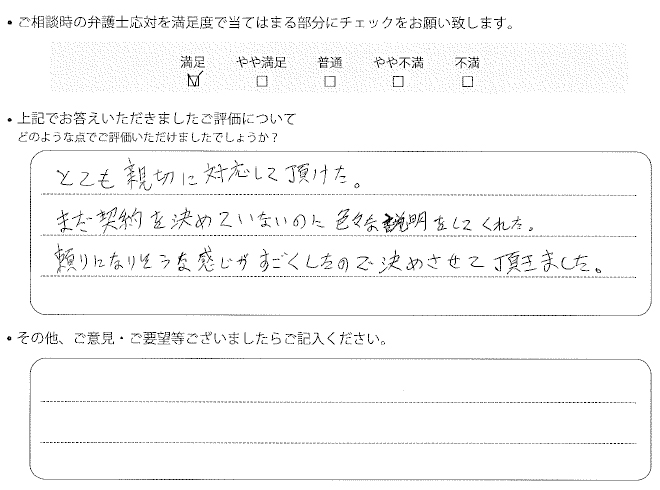 • ご相談時の弁護士応対を満足度で当てはまる部分にチェックをお願い致します。
満足 やや満足 普通 やや不満 不満
☑ □ □ □ □
• 上記でお答えいただきましたご評価について
どのような点でご評価いただけましたでしょうか？
とても親切に対応して頂けた。
まだ契約を決めていないのに色々な説明をしてくれた。
頼りになりそうな感じがすごくしたので決めさせて頂きました。
• その他、ご意見・ご要望等ございましたらご記入ください。